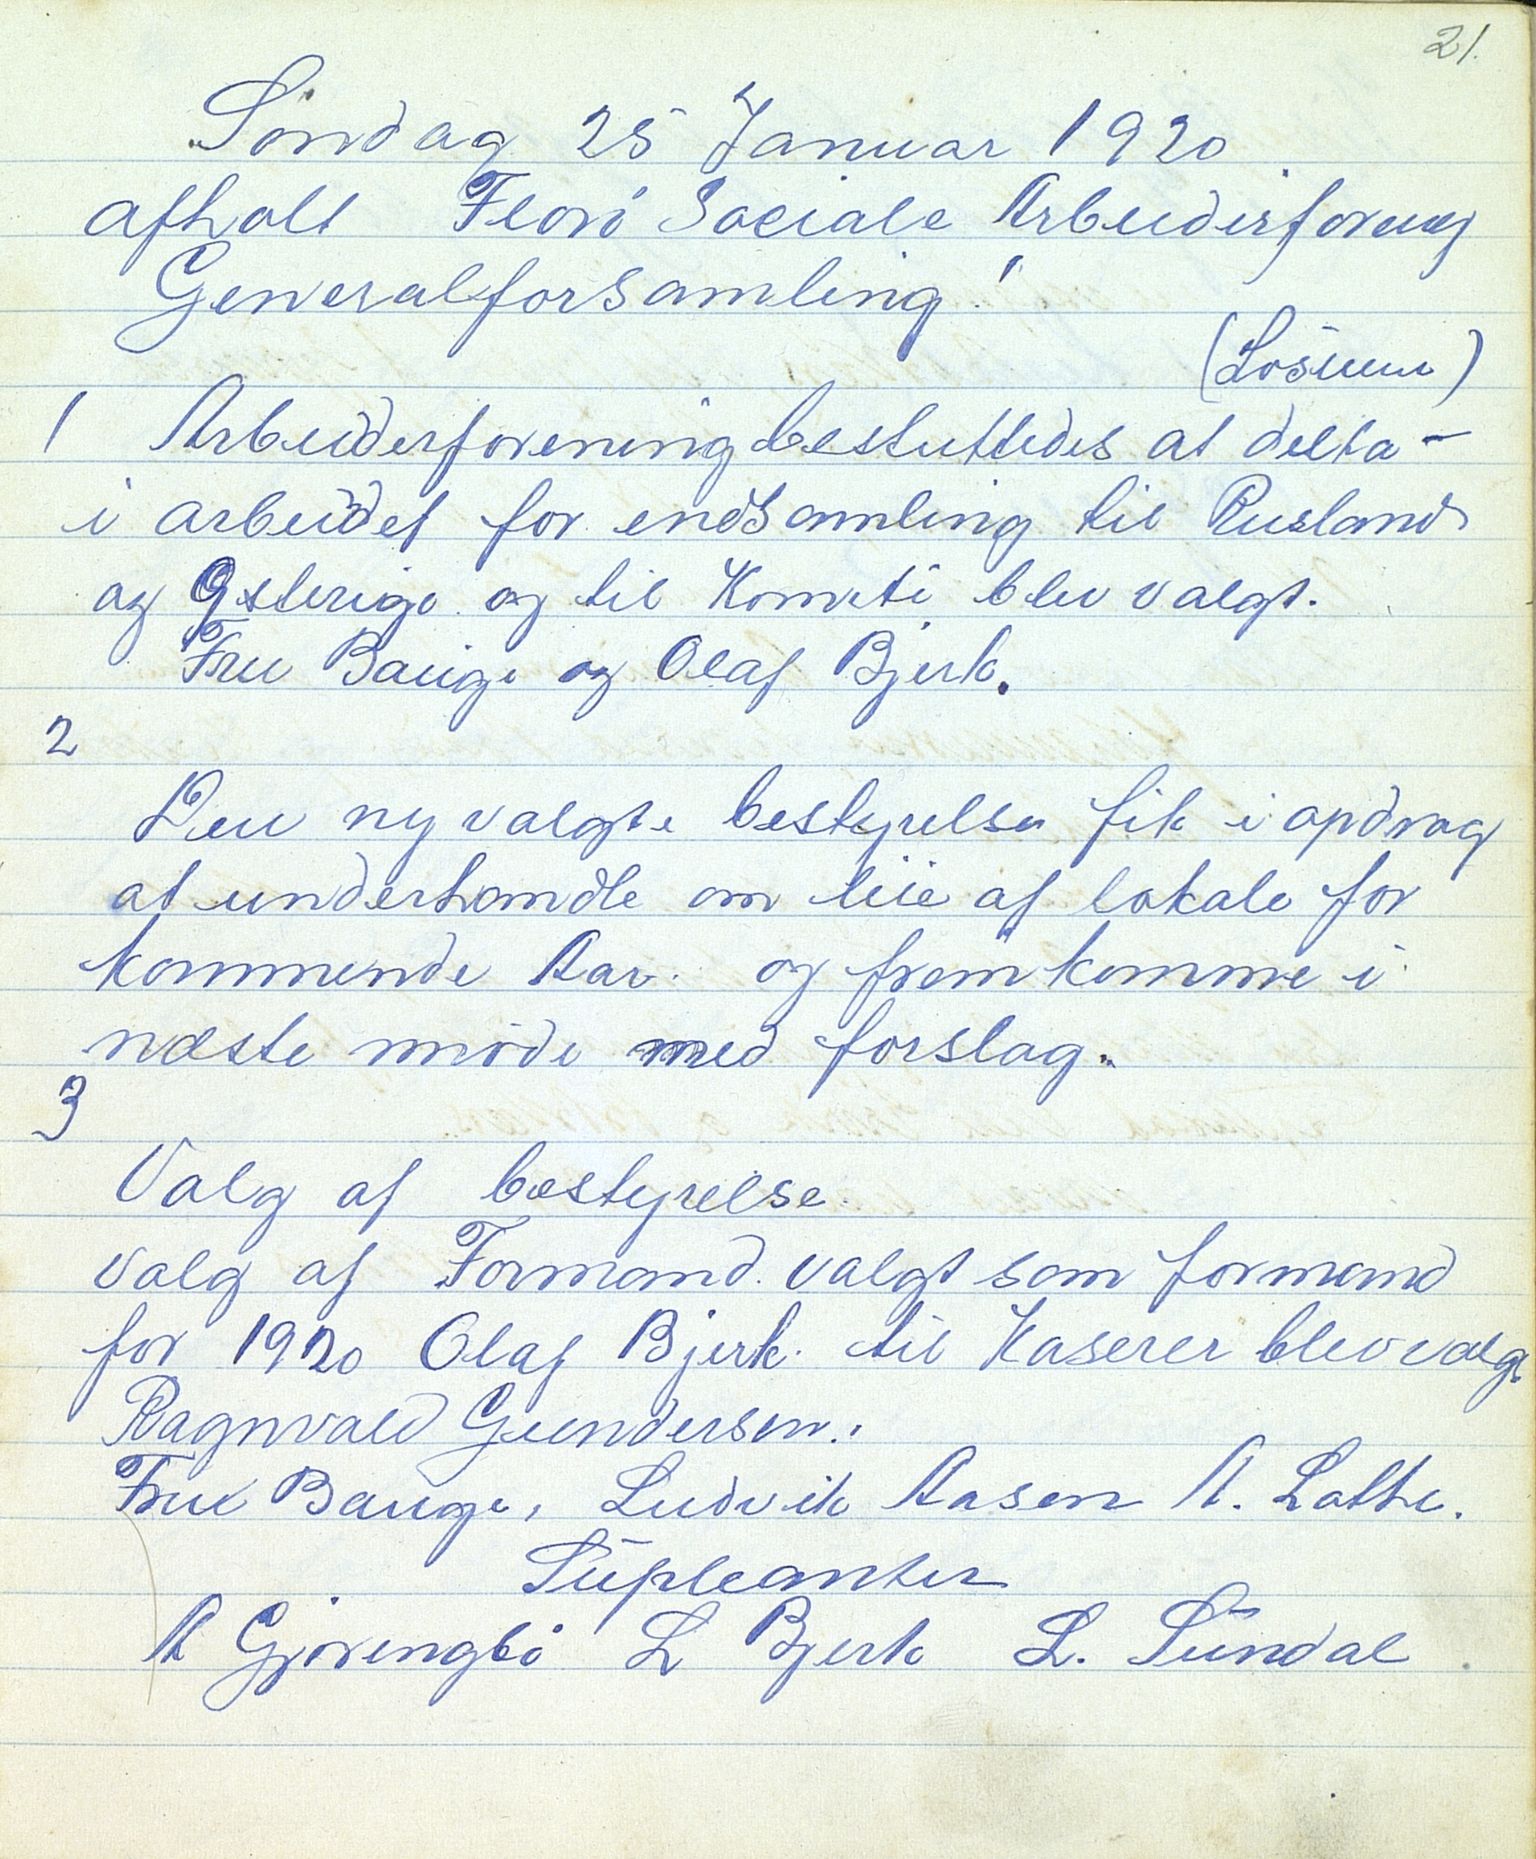 21.
Søndag 25 Januar 1920
afholt Florø Sociale Arbeiderforening
Generalforsamling!
1 Arbeiderforening besluttedes at delta
i arbeidet for endsamling til Rusland
og Østerige og til Komite blev valgt.
Fru Bauge og Olaf Bjerk.
2
Den nyvalgte bestyrelse fik i opdrag
at underhandle om leie af lokale for
kommende Aar. og fremkomme i
næste møde med forslag.
3
Valg af bestyrelse.
Valg af Formand. valgt som formand
for 1920 Olaf Bjerk. til Kaserer blev valgt
Ragnvald Gundersen.
Fru Bauge, Ludvik Aasen A. Lothe.
Supleanter
A Gjørengbø L Bjerk L. Sundal